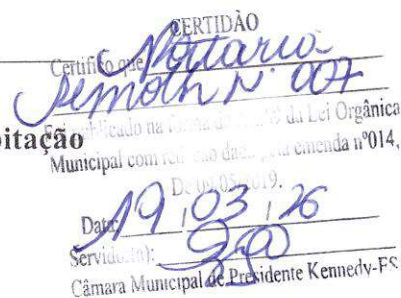 CERTIDÃO
Certifico que Portaria
N° 007
licado na forma do da Lei Orgânica
itação
Municipal com dada pela emenda nº014,
De 05/2019.
Data: 19 / 03 / 26
Servidor(a):
Câmara Municipal de Presidente Kennedy-ES